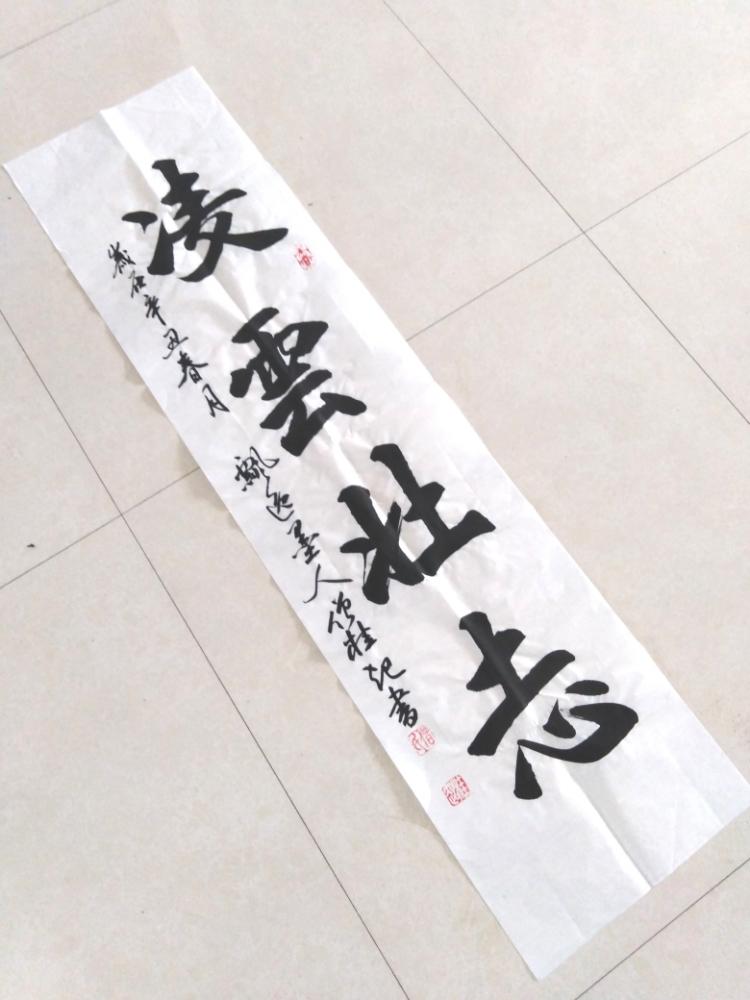 凌雲壯志
歲在辛丑春月 飄逸墨人 桂 書